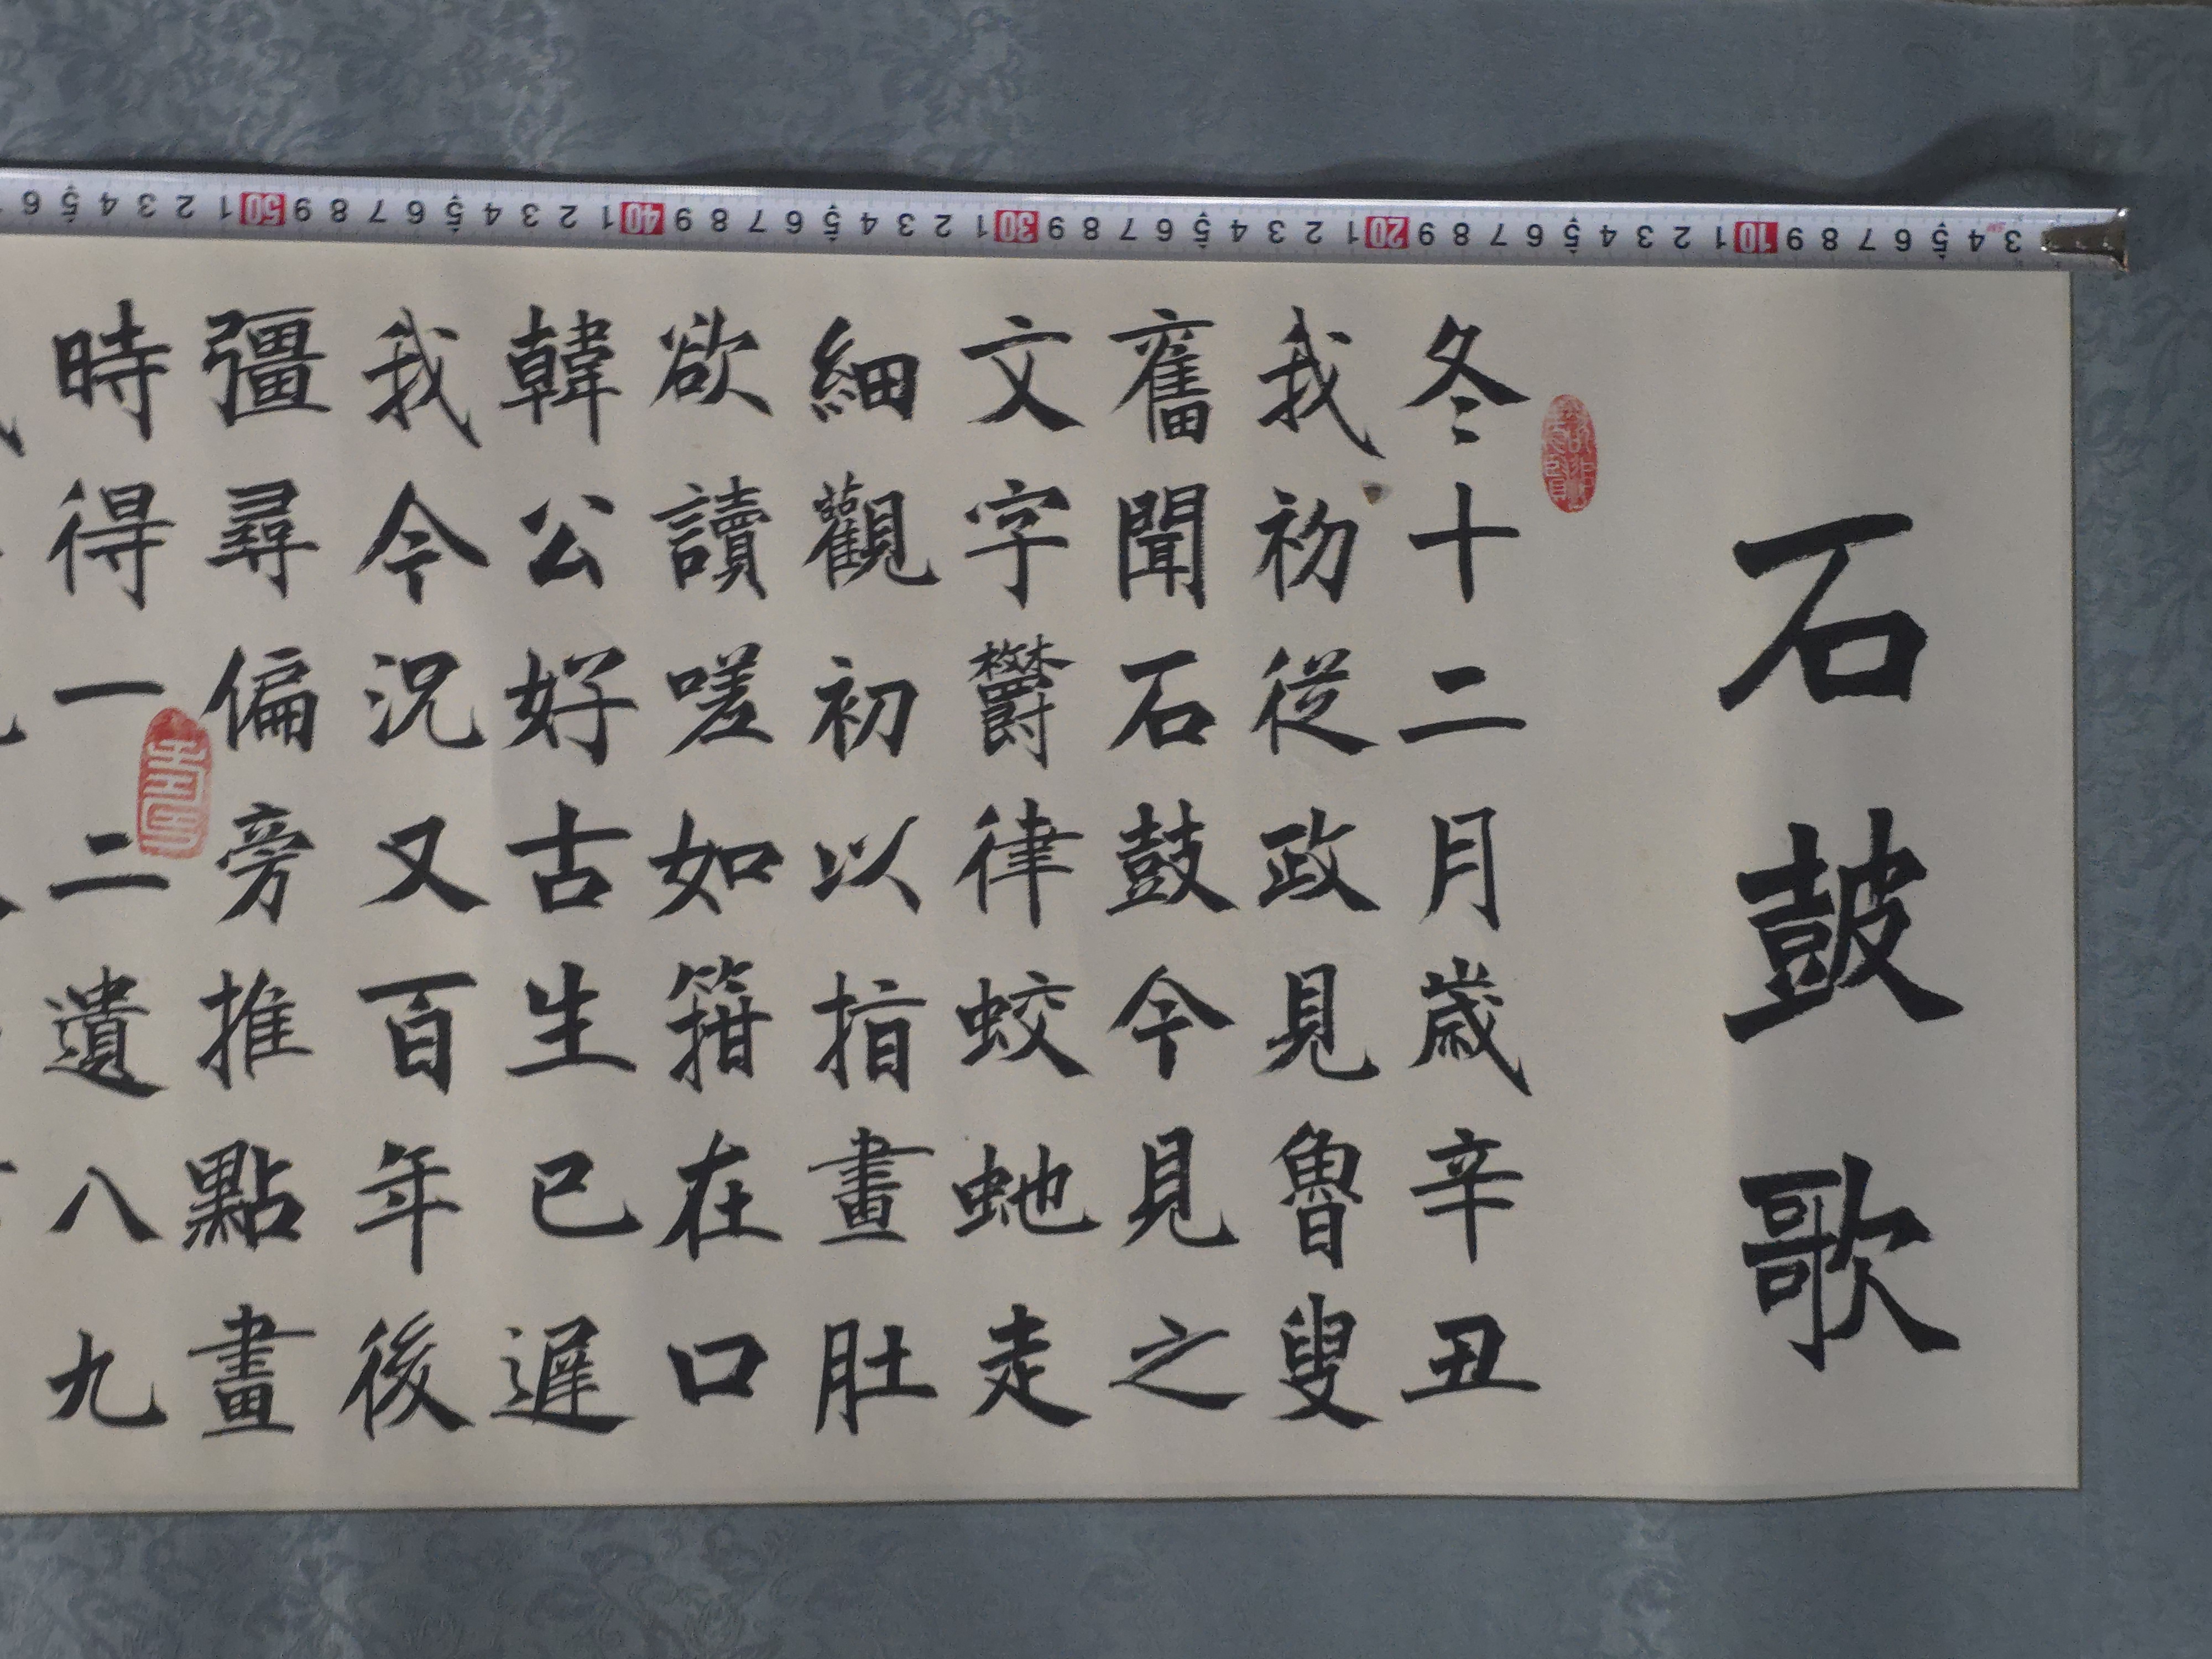 石鼓歌
冬十二月歲辛丑
我初從政見魯叟
舊聞石鼓今見之
文字鬱律蛟虵走
細觀初以指畫肚
欲讀嗟如箝在口
韓公好古生已遲
我今況又百年後
彊尋偏旁推點畫
時得一二遺八九
3 4 5 6 7 8 9 10 1 2 3 4 5 6 7 8 9 20 1 2 3 4 5 6 7 8 9 30 1 2 3 4 5 6 7 8 9 40 1 2 3 4 5 6 7 8 9 50 1 2 3 4 5 6